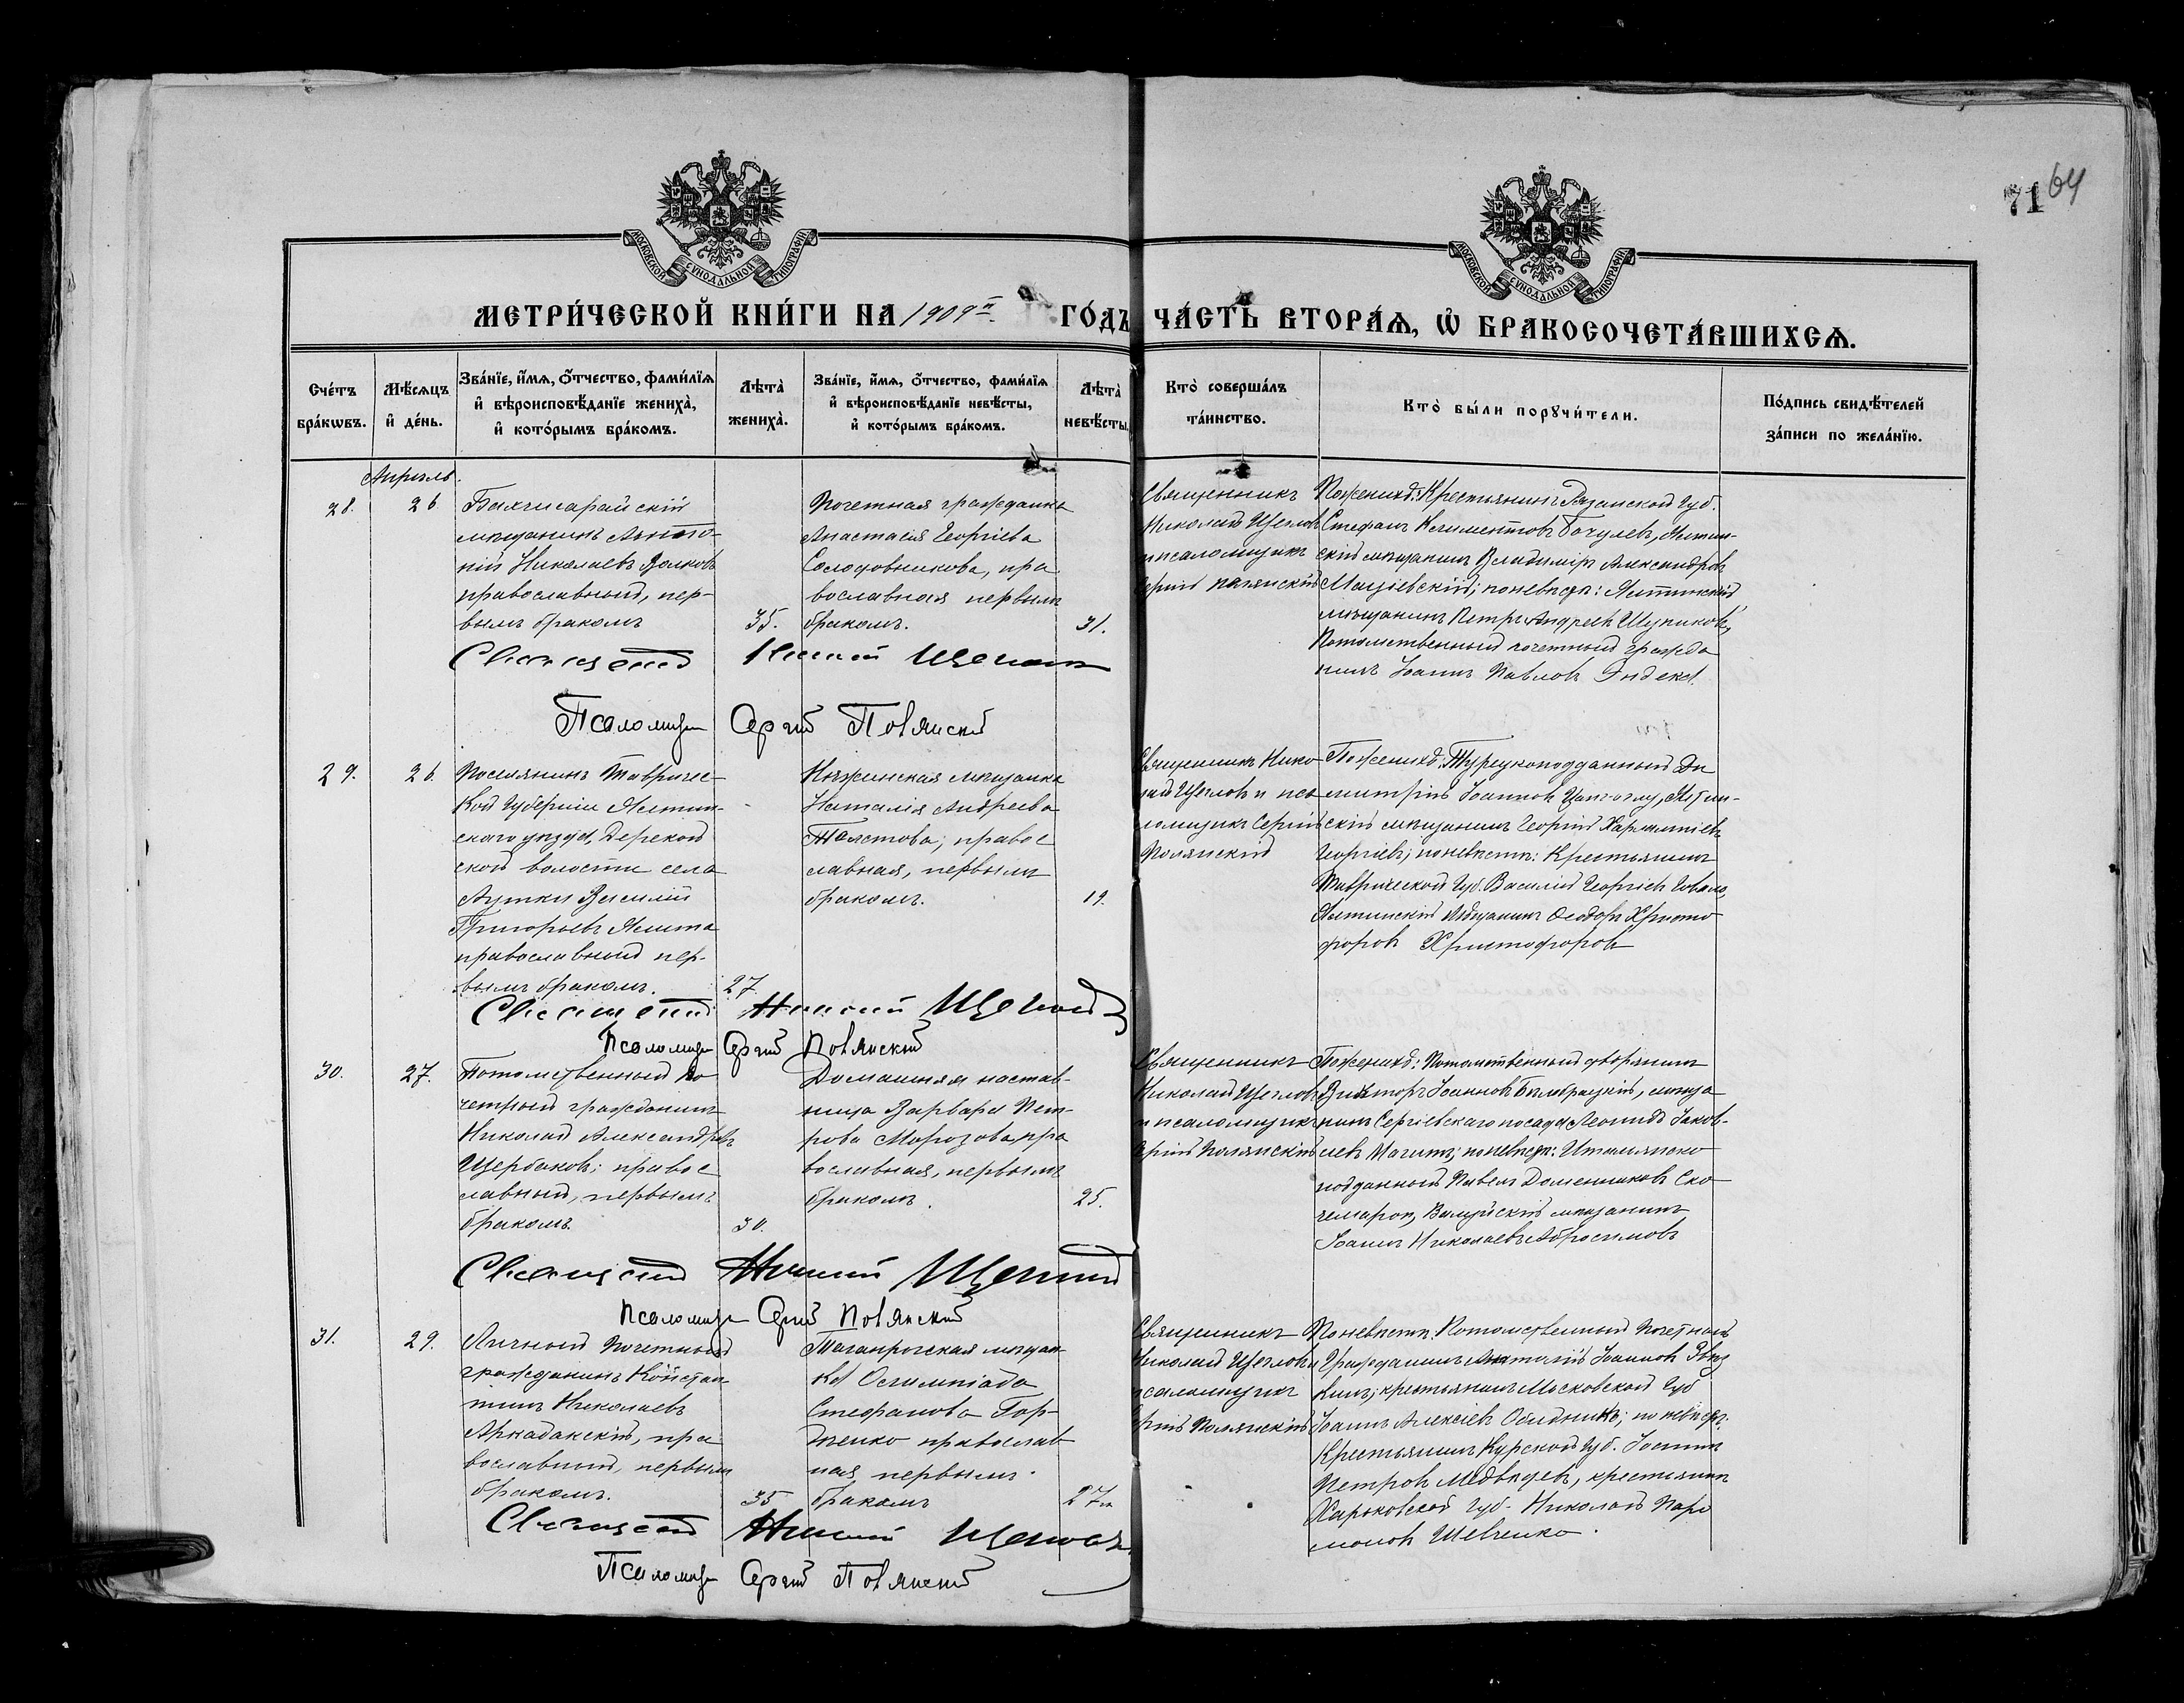 71 64
МОСКОВСКОЙ СУНОДАЛЬНОЙ ТИПОГРАФІИ
МОСКОВСКОЙ СУНОДАЛЬНОЙ ТИПОГРАФІИ
МЕТРИ́ЧЕСКОЙ КНИ́ГИ НА 1909й. ГО́ДЪ ЧА́СТЬ ВТОРА́Ѧ, Ѽ БРАКОСОЧЕТА́ВШИХСѦ.
Сче́тъ бра́кѡвъ.
Мѣ́сѧцъ и҆ де́нь.
Зва́нїе, и҆́мѧ, ѻ҆́тчество, фами́лїѧ
и҆ вѣроисповѣ́данїе жениха̀,
и҆ кото́рымъ бра́комъ.
Лѣта̀ жениха̀.
Зва́нїе, и҆́мѧ, ѻ҆́тчество, фами́лїѧ
и҆ вѣроисповѣ́данїе невѣ́сты,
и҆ кото́рымъ бра́комъ.
Лѣта̀ невѣ́сты.
Кто̀ соверша́лъ
та́инство.
Кто̀ бы́ли порꙋчи́тели.
По́дпись свидѣ́телей
за́писи по жела́нїю.
Апрѣль.
28.
26
Бахчисарайскій
мѣщанинъ Анто-
ній Николаевъ Волковъ
православный, пер-
вымъ бракомъ
35.
Почетная гражданка
Анастасія Георгіева
Солодовникова, пра
вославная первымъ
бракомъ.
31.
Священникъ
Николай Щегловъ
и псаломщикъ
Сергій Полянскій
По женихѣ: Крестьянинъ Рязанской Губ.
Стефанъ Климентовъ Бочулевъ, Ялтин-
скій мѣщанинъ Владиміръ Александровъ
Мацѣевскій; по невѣстѣ: Ялтинскій
мѣщанинъ Петръ Андреевъ Щупиковъ,
Потомственный почетный гражда
нинъ Іоаннъ Павловъ
Священникъ Николай Щегловъ
Псаломщикъ Сергій Полянскій
29.
26.
Поселянинъ Тавричес-
кой Губерніи Ялтин-
скаго уѣзда, Дерекой
ской волости села
Аутки Василій
Григорьевъ
православный пер-
вымъ бракомъ.
27.
Нѣжинская мѣщанка
Наталія Андреева
Толстова; правос
лавная, первымъ
бракомъ.
19.
Священникъ Нико
лай Щегловъ и пса
ломщикъ Сергій
Полянскій
По женихѣ: Турецкоподданный Ди
митрій Іоанновъ Ялтин-
скій мѣщанинъ Георгій Харлампіевъ
Георгіевъ; по невѣстѣ: Крестьянинъ
Таврической Губ. Василій Георгіевъ
Ялтинскій мѣщанинъ Ѳеодоръ Христо
форовъ Христофоровъ
Священникъ Николай Щегловъ
Псаломщикъ Сергій Полянскій
30.
27.
Потомственный по
четный гражданинъ
Николай Александровъ
Щербаковъ; правос
лавный, первымъ
бракомъ.
30.
Домашняя настав-
ница Варвара Пет-
рова Морозова, пра
вославная, первымъ
бракомъ.
25.
Священникъ
Николай Щегловъ
и псаломщикъ
Сергій Полянскій
По женихѣ: Потомственный дворянинъ
Викторъ Іоанновъ мѣща
нинъ Сергіевскаго посада Леонидъ Іаков-
левъ по невѣстѣ: Итальянско
подданный Павелъ Доменнаковъ Ско
чемаро, Валуйскій мѣщанинъ
Іоаннъ Николаевъ Абросимовъ
Священникъ Николай Щегловъ
Псаломщикъ Сергій Полянскій
31.
29.
Личный почетный
гражданинъ Констан
тинъ Николаевъ
Аркадакскій, пра
вославный, первымъ
бракомъ.
35
Таганрогская мѣщан-
ка Олимпіада
Стефанова Гор-
православ
ная первымъ
бракомъ
27
Священникъ
Николай Щегловъ и
псаломщикъ
Сергій Полянскій
По невѣстѣ: Потомственный почетный
гражданинъ Анатолій Іоанновъ
кинъ; крестьянинъ Московской Губ
Іоаннъ Алексіевъ по невѣстѣ:
Крестьянинъ Курской Губ. Іоаннъ
Петровъ Медвѣдевъ, крестьянинъ
Харьковской Губ. Николай Пара
моновъ Шевченко.
Священникъ Николай Щегловъ
Псаломщикъ Сергій Полянскій